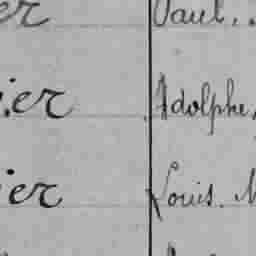 er Paul,
ier Adolphe,
ier Louis. M